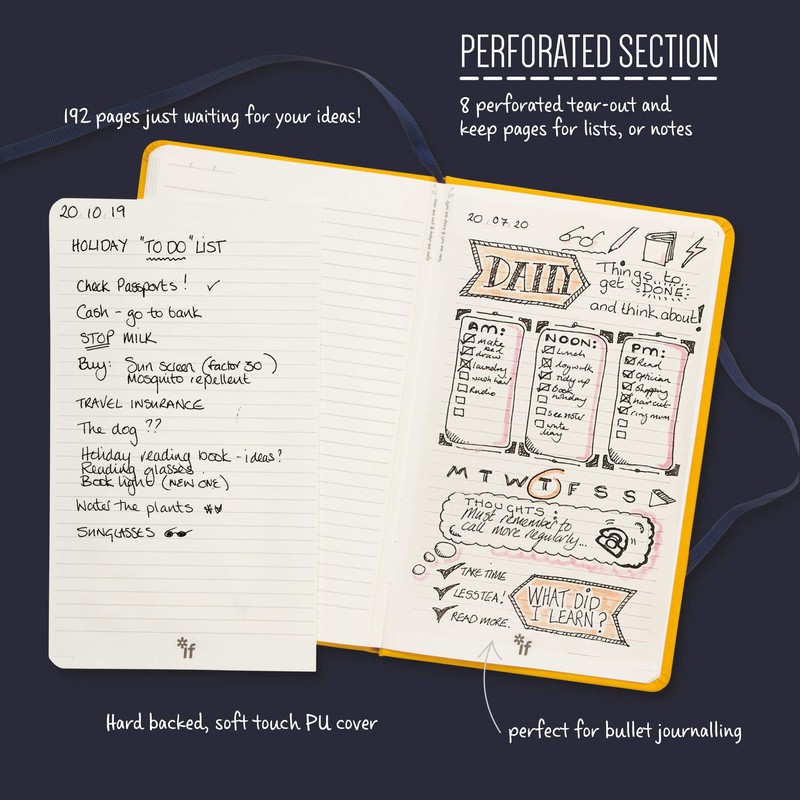 PERFORATED SECTION
8 perforated tear-out and
keep pages for lists, or notes
192 pages just waiting for your ideas!
20 10 19
HOLIDAY "TO DO" LIST
Check Passports! ✓
Cash - go to bank
STOP MILK
Buy: Sun screen (factor 30)
Mosquito repellent
TRAVEL INSURANCE
The dog ??
Holiday reading book - ideas?
Reading glasses
Book light (NEW ONE)
Water the plants
SUNGLASSES
*if
20 07 20
DAILY
Things to
get DONE
and think about!
AM:
make
bed
draw
laundry
wash hair
Audio
NOON:
Lunch
dogwalk
Tidy up
Book
holiday
see note
write
diary
PM:
Read
Optician
Shopping
haircut
ring mum
M T W T F S S
THOUGHTS:
Must remember to
call more regularly...
TAKE TIME
LESS TEA!
READ MORE.
WHAT DID
I LEARN?
*if
Hard backed, soft touch PU cover
perfect for bullet journalling